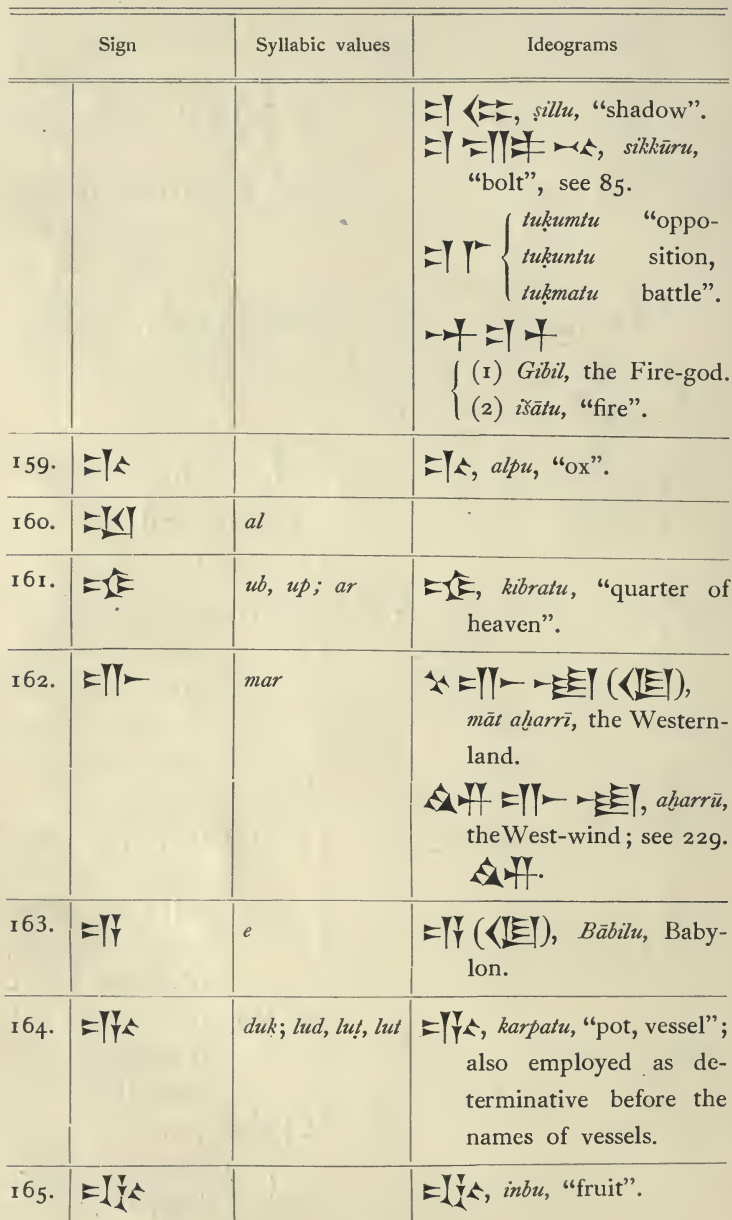 Sign Syllabic values Ideograms
𒄑 𒈪, ṣillu, “shadow”.
𒄑 𒊕 𒆰, sikkūru,
“bolt”, see 85.
tuḳumtu “oppo-
𒄑 𒇲 { tuḳuntu sition,
tuḳmatu battle”.
𒀭 𒄑 𒁇
{ (1) Gibil, the Fire-god.
(2) išātu, “fire”.
159. 𒄞 𒄞, alpu, “ox”.
160. 𒀠 al
161. 𒌒 ub, up; ar 𒌒, kibratu, “quarter of
heaven”.
162. 𒈥 mar 𒆳 𒈥 𒌅 (𒆠),
māt aḫarrī, the Western-
land.
𒅎 𒈥 𒌅, aḫarrū,
the West-wind; see 229.
𒅎.
163. 𒂊 e 𒂊 (𒆠), Bābilu, Baby-
lon.
164. 𒂁 duk; lud, luṭ, lut 𒂁, karpatu, “pot, vessel”;
also employed as de-
terminative before the
names of vessels.
165. 𒄧 𒄧, inbu, “fruit”.